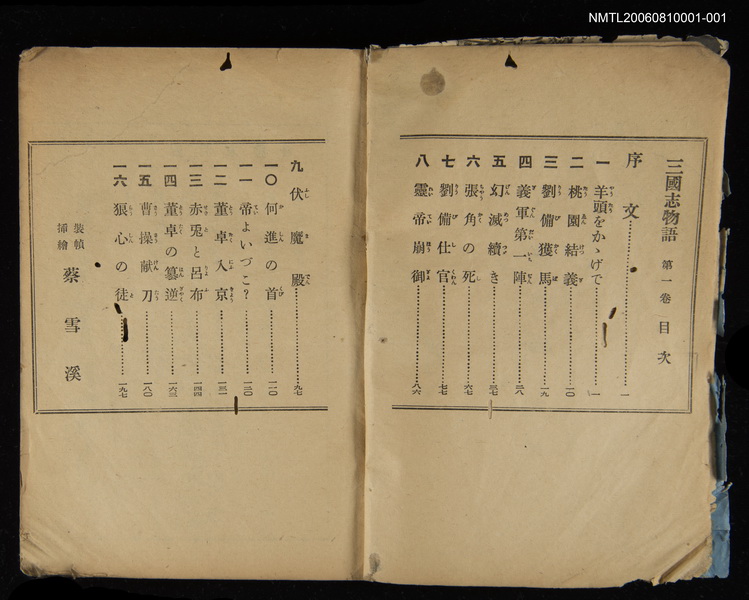 NMTL20060810001-001
三國志物語 第一卷 目次
序文 一
一 羊頭をかゝげて 一
二 桃園結義 一〇
三 劉備獲馬 一九
四 義軍第一陣 二八
五 幻滅續き 三七
六 張角の死 六七
七 劉備仕官 七七
八 靈帝崩御 八六
九 伏魔殿 九七
一〇 何進の首 一一〇
一一 帝よいづこ? 一二〇
一二 董卓入京 一三一
一三 赤兎と呂布 一四四
一四 董卓の簒逆 一六三
一五 曹操献刀 一八〇
一六 狼心の徒 一九七
裝幀
挿繪 蔡雪溪